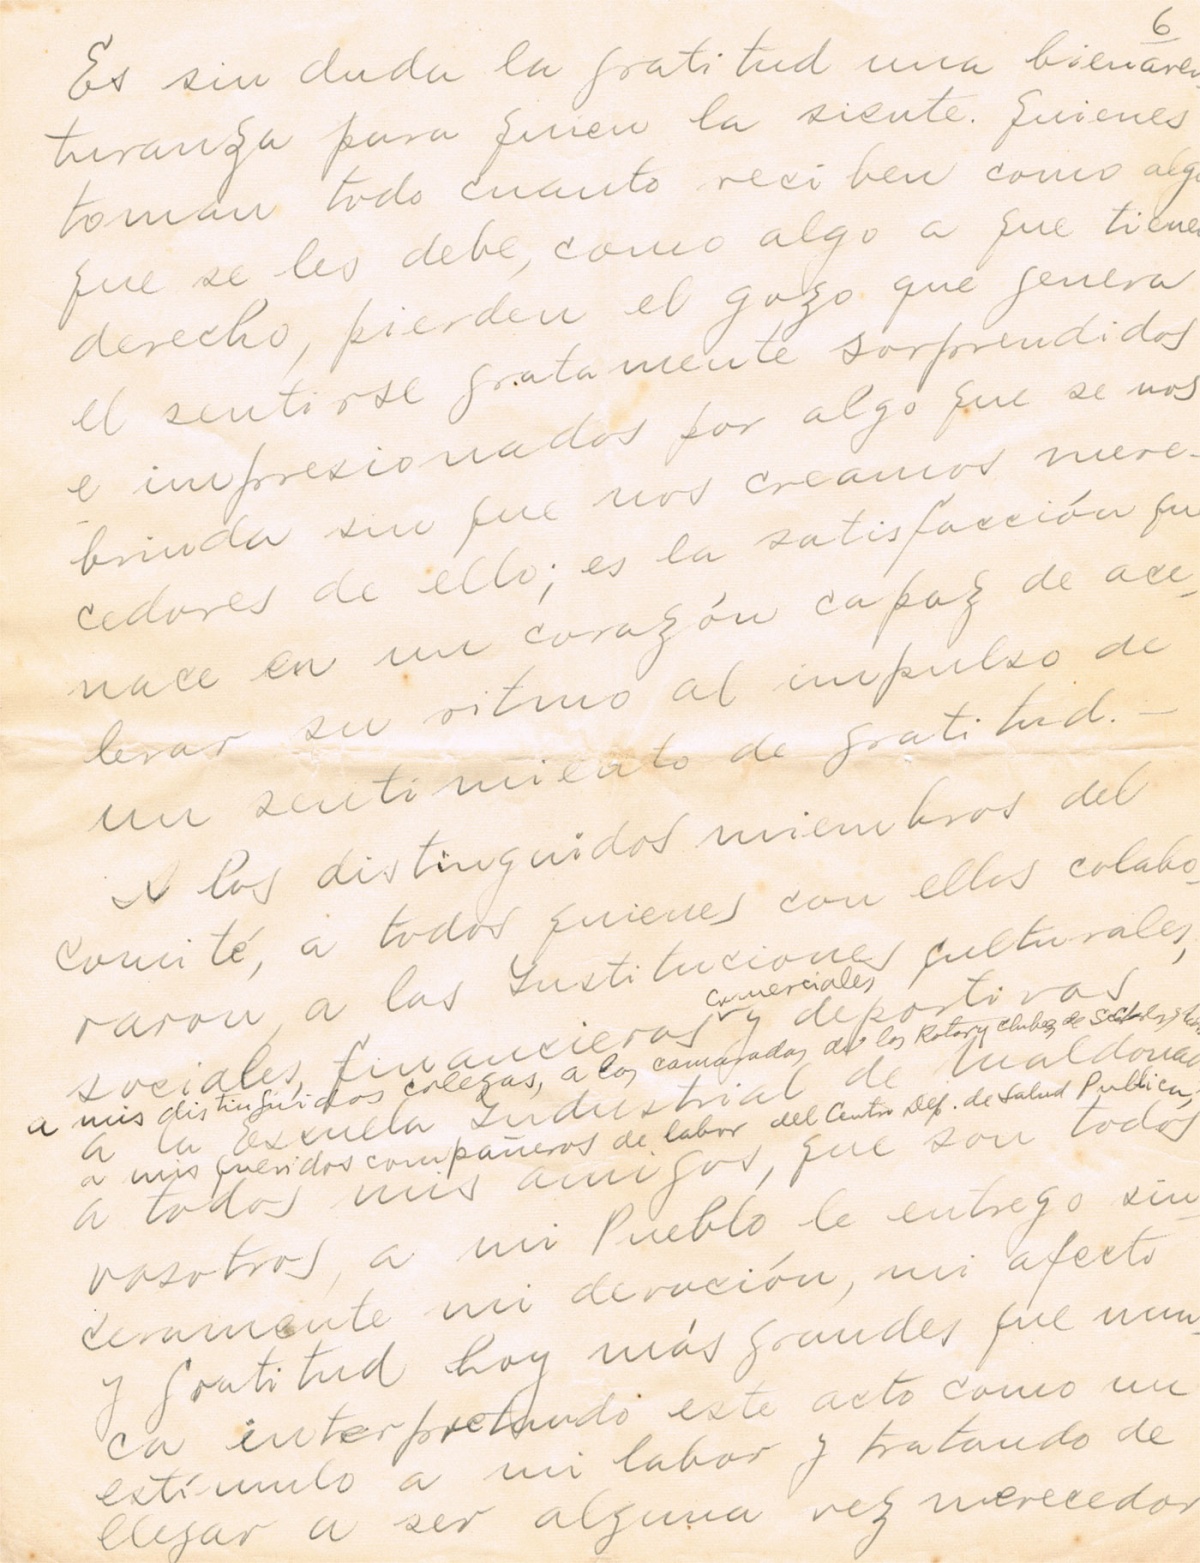 6
Es sin duda la gratitud una bienaven
turanza para quien la siente. Quienes
toman todo cuanto reciben como algo
que se les debe, como algo a que tienen
derecho, pierden el gozo que genera
el sentirse gratamente sorprendidos
e impresionados por algo que se nos
brinda sin que nos creamos mere-
cedores de ello; es la satisfacción que
nace en un corazón capaz de ace-
lerar su ritmo al impulso de
un sentimiento de gratitud. -
A los distinguidos miembros del
comité, a todos quienes con ellos colabo-
raron, a las Instituciones culturales,
comerciales
sociales, financieras y deportivas
a mis distinguidos colegas, a los camaradas de los Rotary Clubes de
a la Escuela Industrial de Maldonado
a mis queridos compañeros de labor del Centro Dep. de Salud Publica,
a todos mis amigos, que son todos
vosotros, a mi Pueblo le entrego sin-
ceramente mi devoción, mi afecto
y gratitud hoy más grandes que nun-
ca interpretando este acto como un
estímulo a mi labor y tratando de
llegar a ser alguna vez merecedor